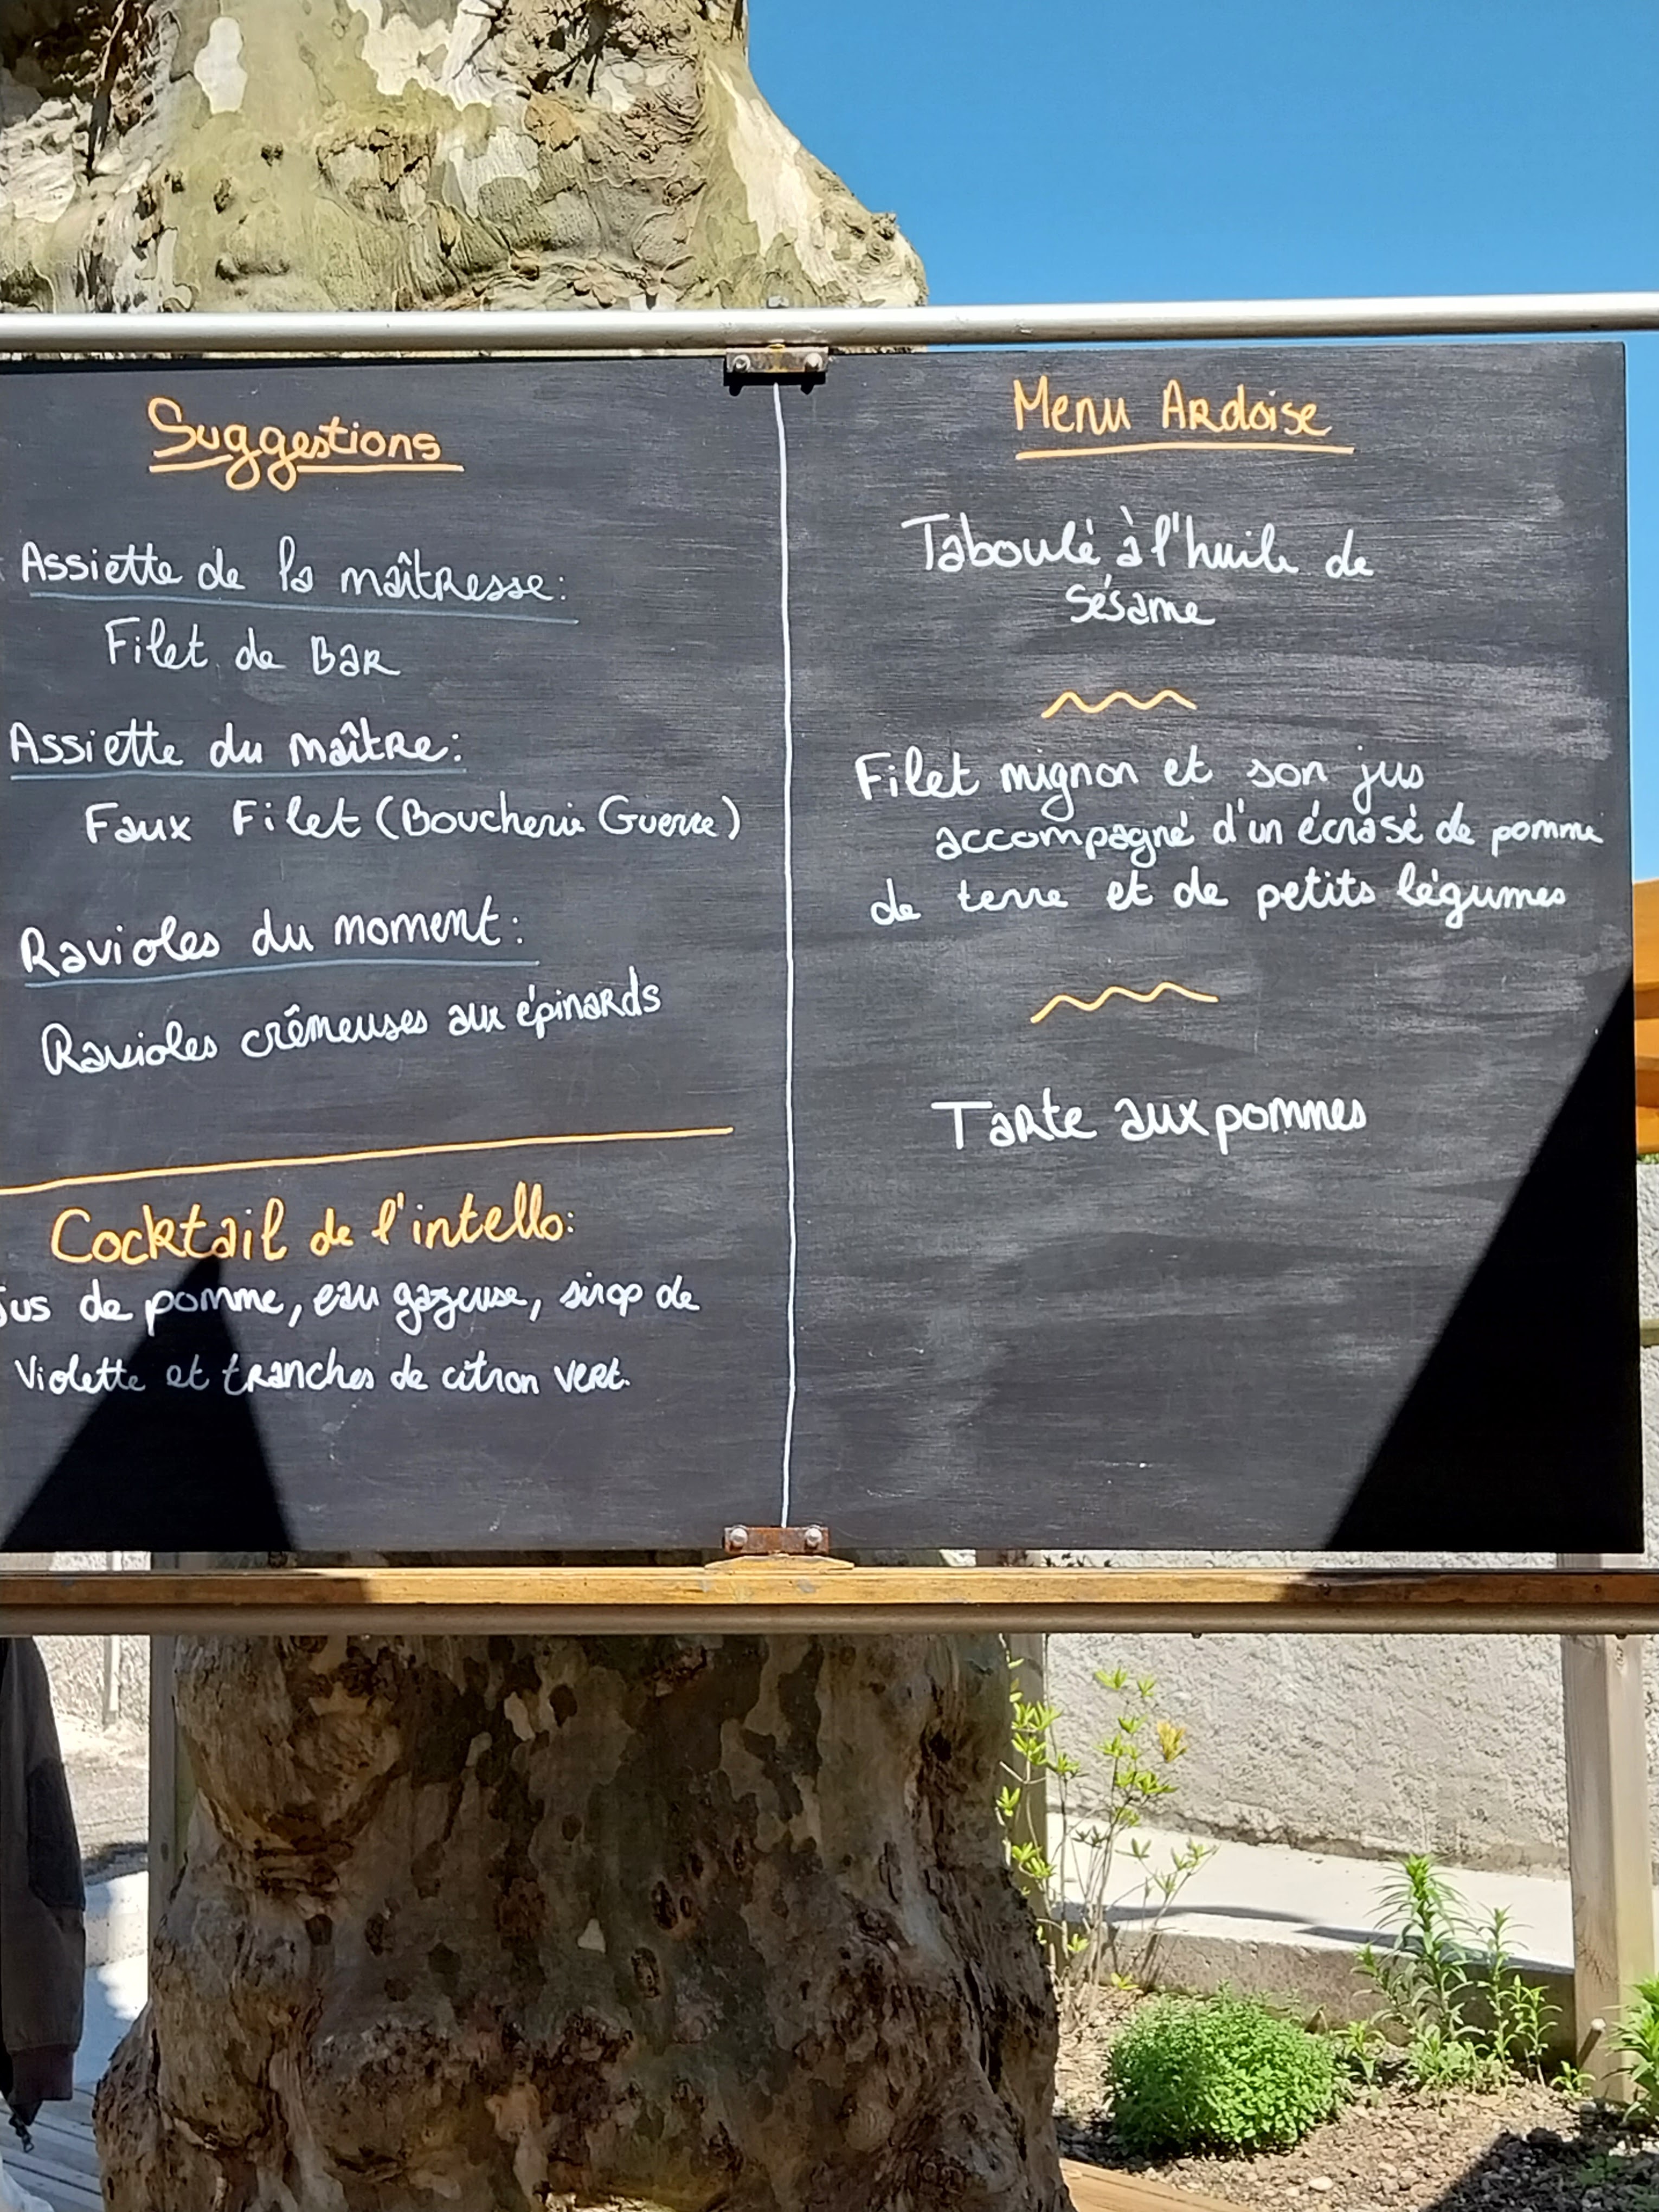 Suggestions
Assiette de la maîtresse:
Filet de Bar
Assiette du maître:
Faux Filet (Boucherie Guerre)
Ravioles du moment:
Ravioles crêmeuses aux épinards
Cocktail de l'intello:
jus de pomme, eau gazeuse, sirop de
Violette et tranches de citron vert.
Menu Ardoise
Taboulé à l'huile de
sésame
Filet mignon et son jus
accompagné d'un écrasé de pomme
de terre et de petits légumes
Tarte aux pommes